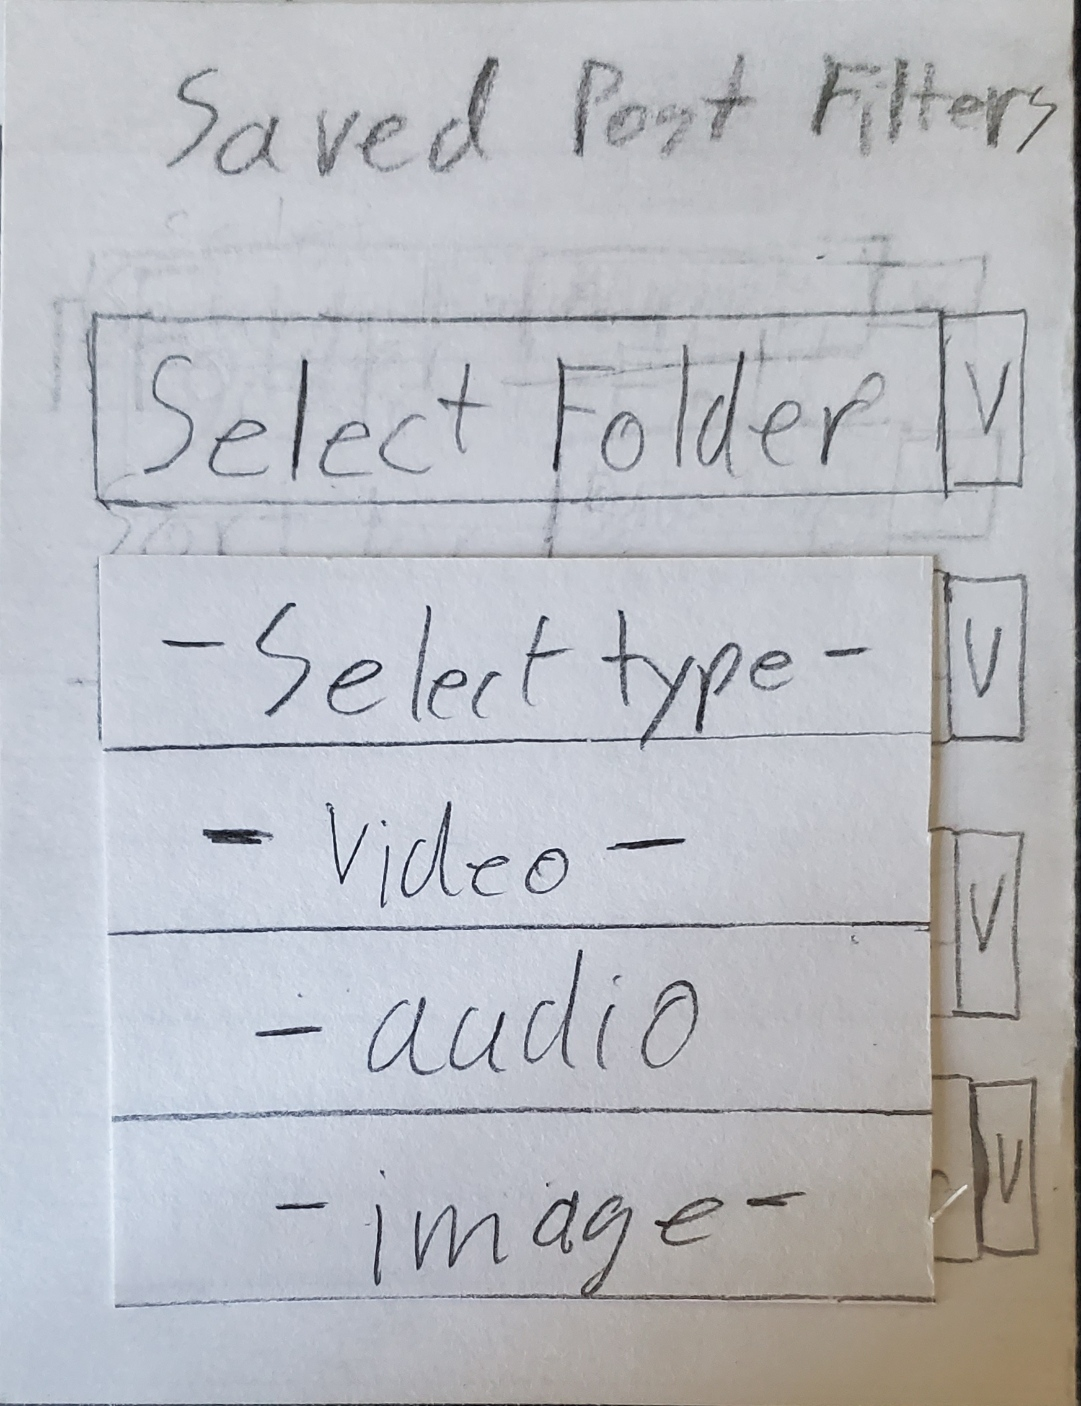 Saved Post Filters
Select Folder V
- Select type - V
- Video -
V
- audio
- image - V